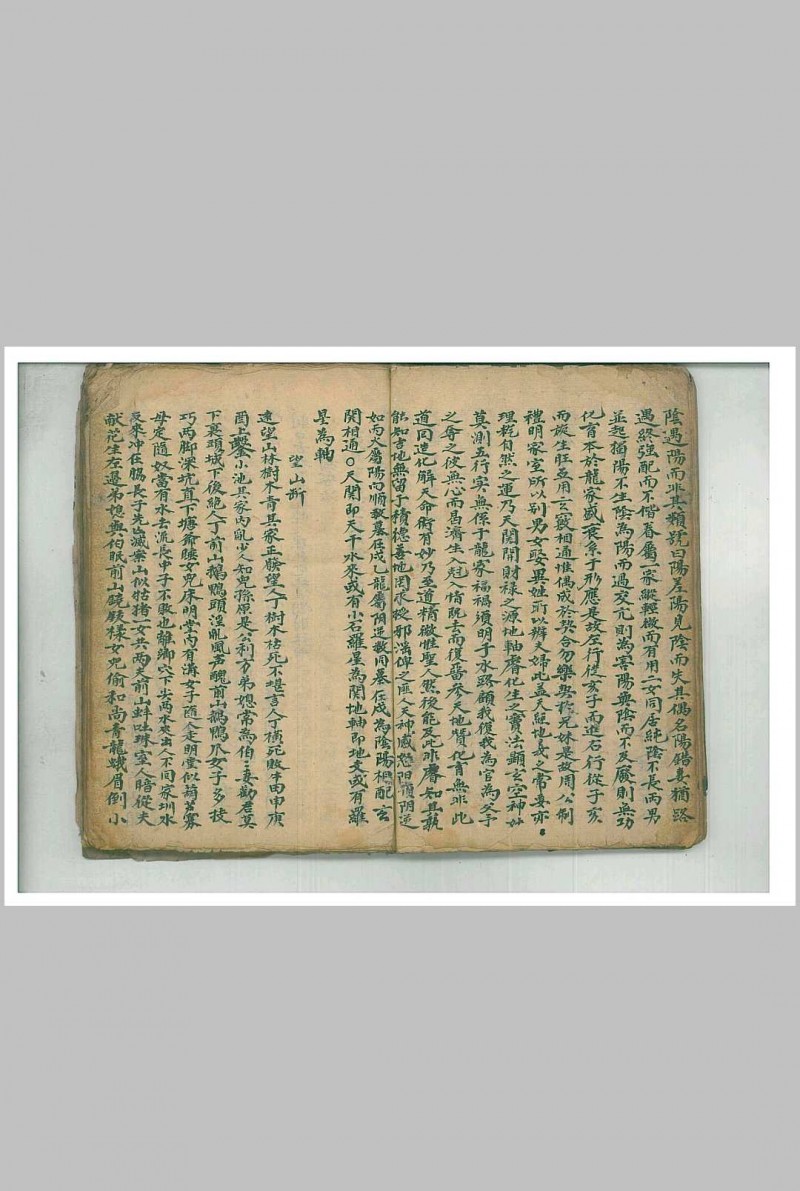 陰遇陽而非其類號曰陽差陽見陰而失其偶名陽錯妻猶路
遇終強配而不偕眷屬一家縱輕微而有用二女同居純陰不長兩男
並起猶陽不生陰為陽而過交亢則為害陽無陰而不及廢則無功
化育本於龍家盛衰系于形應是故左行從亥子而進右行從子亥
而旋生旺互用玄竅相通惟偶成於契合勿樂娶於兄妹是故周公制
禮明家室所以別男女娶異姓所以辦夫婦此蓋天經地義之常要亦
理乾自然之運乃天関開財禄之源地軸膺化生之寶法顯玄空神妙
莫測五行字無係于龍家福禍須明子水路顧我復我為官為父予
之奪之彼無心而昌濟生入尅入情既去而復番參天地賛化育無非此
道同造化觧天命術有妙乃至道精微惟聖人然後能及此非膚知其執
能知吉地無留于積德善地罔求授邪滛碑之匪人天神感怒陽順陰逆
如丙火屬陽而順数墓在戌乙龍屬阴逆数同墓在戌為陰陽相配玄
関相通〇天関即天干水來或有小石羅星為関地軸即地支或有羅
星為軸
望山斷
遠望山林樹木青其家正發望人丁樹木枯死不堪言人丁横死敗牛田申庚
酉上鑿小池其家內亂少人知兒孫原是公利方弟媳常為伯〻妻勸君莫
下裹頭城下後絕人丁前山鵝鴨頭淫亂風声醜前山鵝鴨爪女子多枝
巧兩脚深坑直下塘爺睦女兒床明堂內有溝女子隨人走明堂似葫芦寡
母定隨奴當有水去流長甲子不敗也離鄉穴下尖兩水夾出人不同家圳水
反來冲在脇長子先凶滅案山似牯猪一女共兩夫前山蚌吐珠室人暗從夫
献花生左邊弟媳與伯眠前山鐃鈸樣女兒偷和尚青龍蛾眉倒小